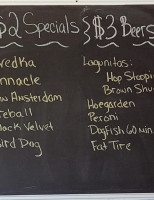 $2 Specials } $3 Beers
vedka
innacle
w Amsterdam
reball
lack Velvet
ird Dog
Lagunitas:
Hop Stoopi
Brown Shu
Hoegarden
Peroni
Dogfish 60 min.
Fat Tire